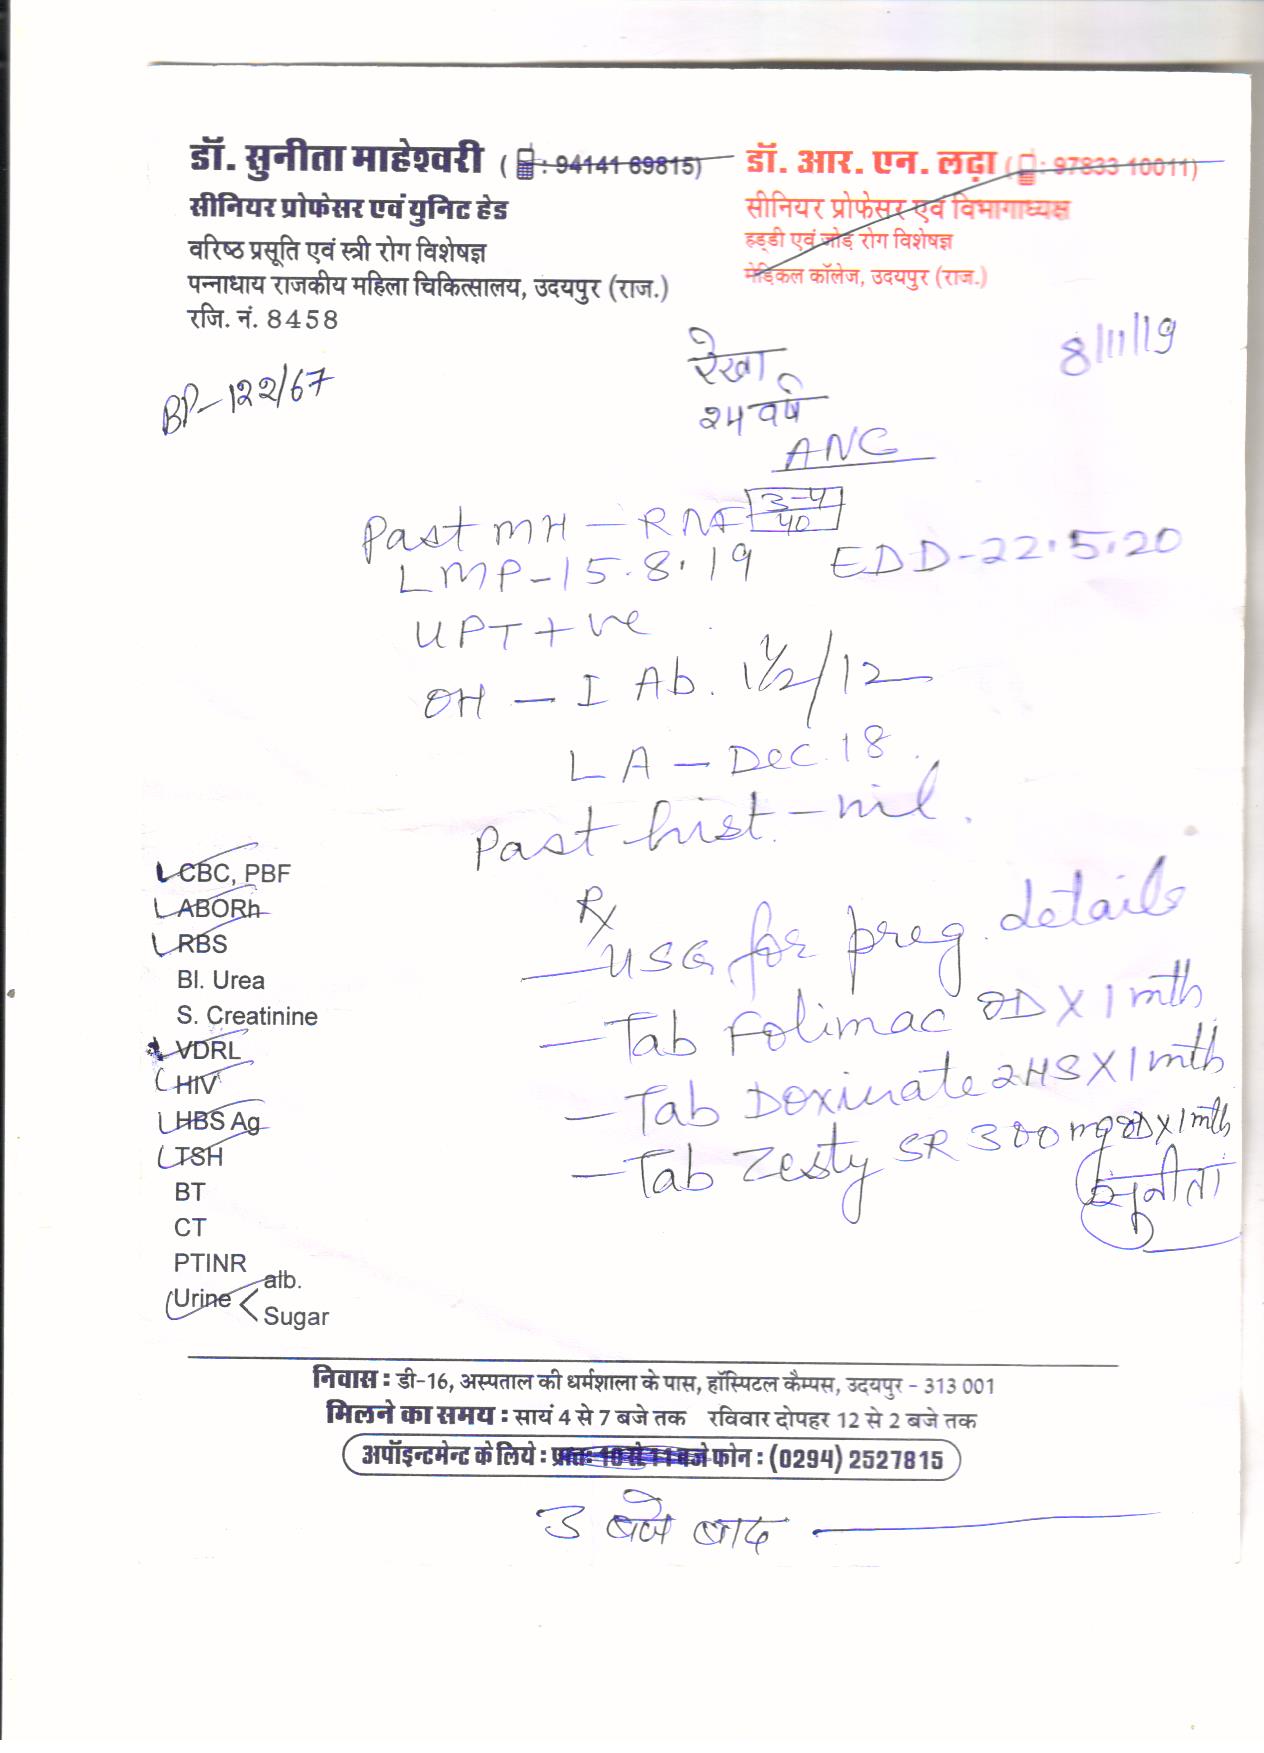 डॉ. सुनीता माहेश्वरी (: 94141 69815)
सीनियर प्रोफेसर एवं युनिट हेड
वरिष्ठ प्रसूति एवं स्त्री रोग विशेषज्ञ
पन्नाधाय राजकीय महिला चिकित्सालय, उदयपुर (राज.)
रजि. नं. 8458
डॉ. आर. एन. लढ़ा (: 97833 10011)
सीनियर प्रोफेसर एवं विभागाध्यक्ष
हड्डी एवं जोड़ रोग विशेषज्ञ
मेडिकल कॉलेज, उदयपुर (राज.)
8/11/19
BP-122/67
रेखा
२४ वर्ष
ANC
Past MH - RNF 3-4/40
LMP-15.8.19 EDD-22.5.20
UPT +ve
OH - I Ab. 1½/12
LA - Dec. 18.
Past hist. - nil.
CBC, PBF
ABORh
RBS
Bl. Urea
S. Creatinine
VDRL
HIV
HBS Ag
TSH
BT
CT
PTINR
Urine < alb.
Sugar
Rx
- USG for preg. details
- Tab Folimac OD X 1 mth
- Tab Doxinate 2HS X 1 mth
- Tab Zesty SR 300 mg OD X 1 mth
सुनीता
निवास : डी-16, अस्पताल की धर्मशाला के पास, हॉस्पिटल कैम्पस, उदयपुर - 313 001
मिलने का समय : सायं 4 से 7 बजे तक रविवार दोपहर 12 से 2 बजे तक
अपॉइन्टमेन्ट के लिये : प्रातः 10 से 11 बजे फोन : (0294) 2527815
3 बजे बाद